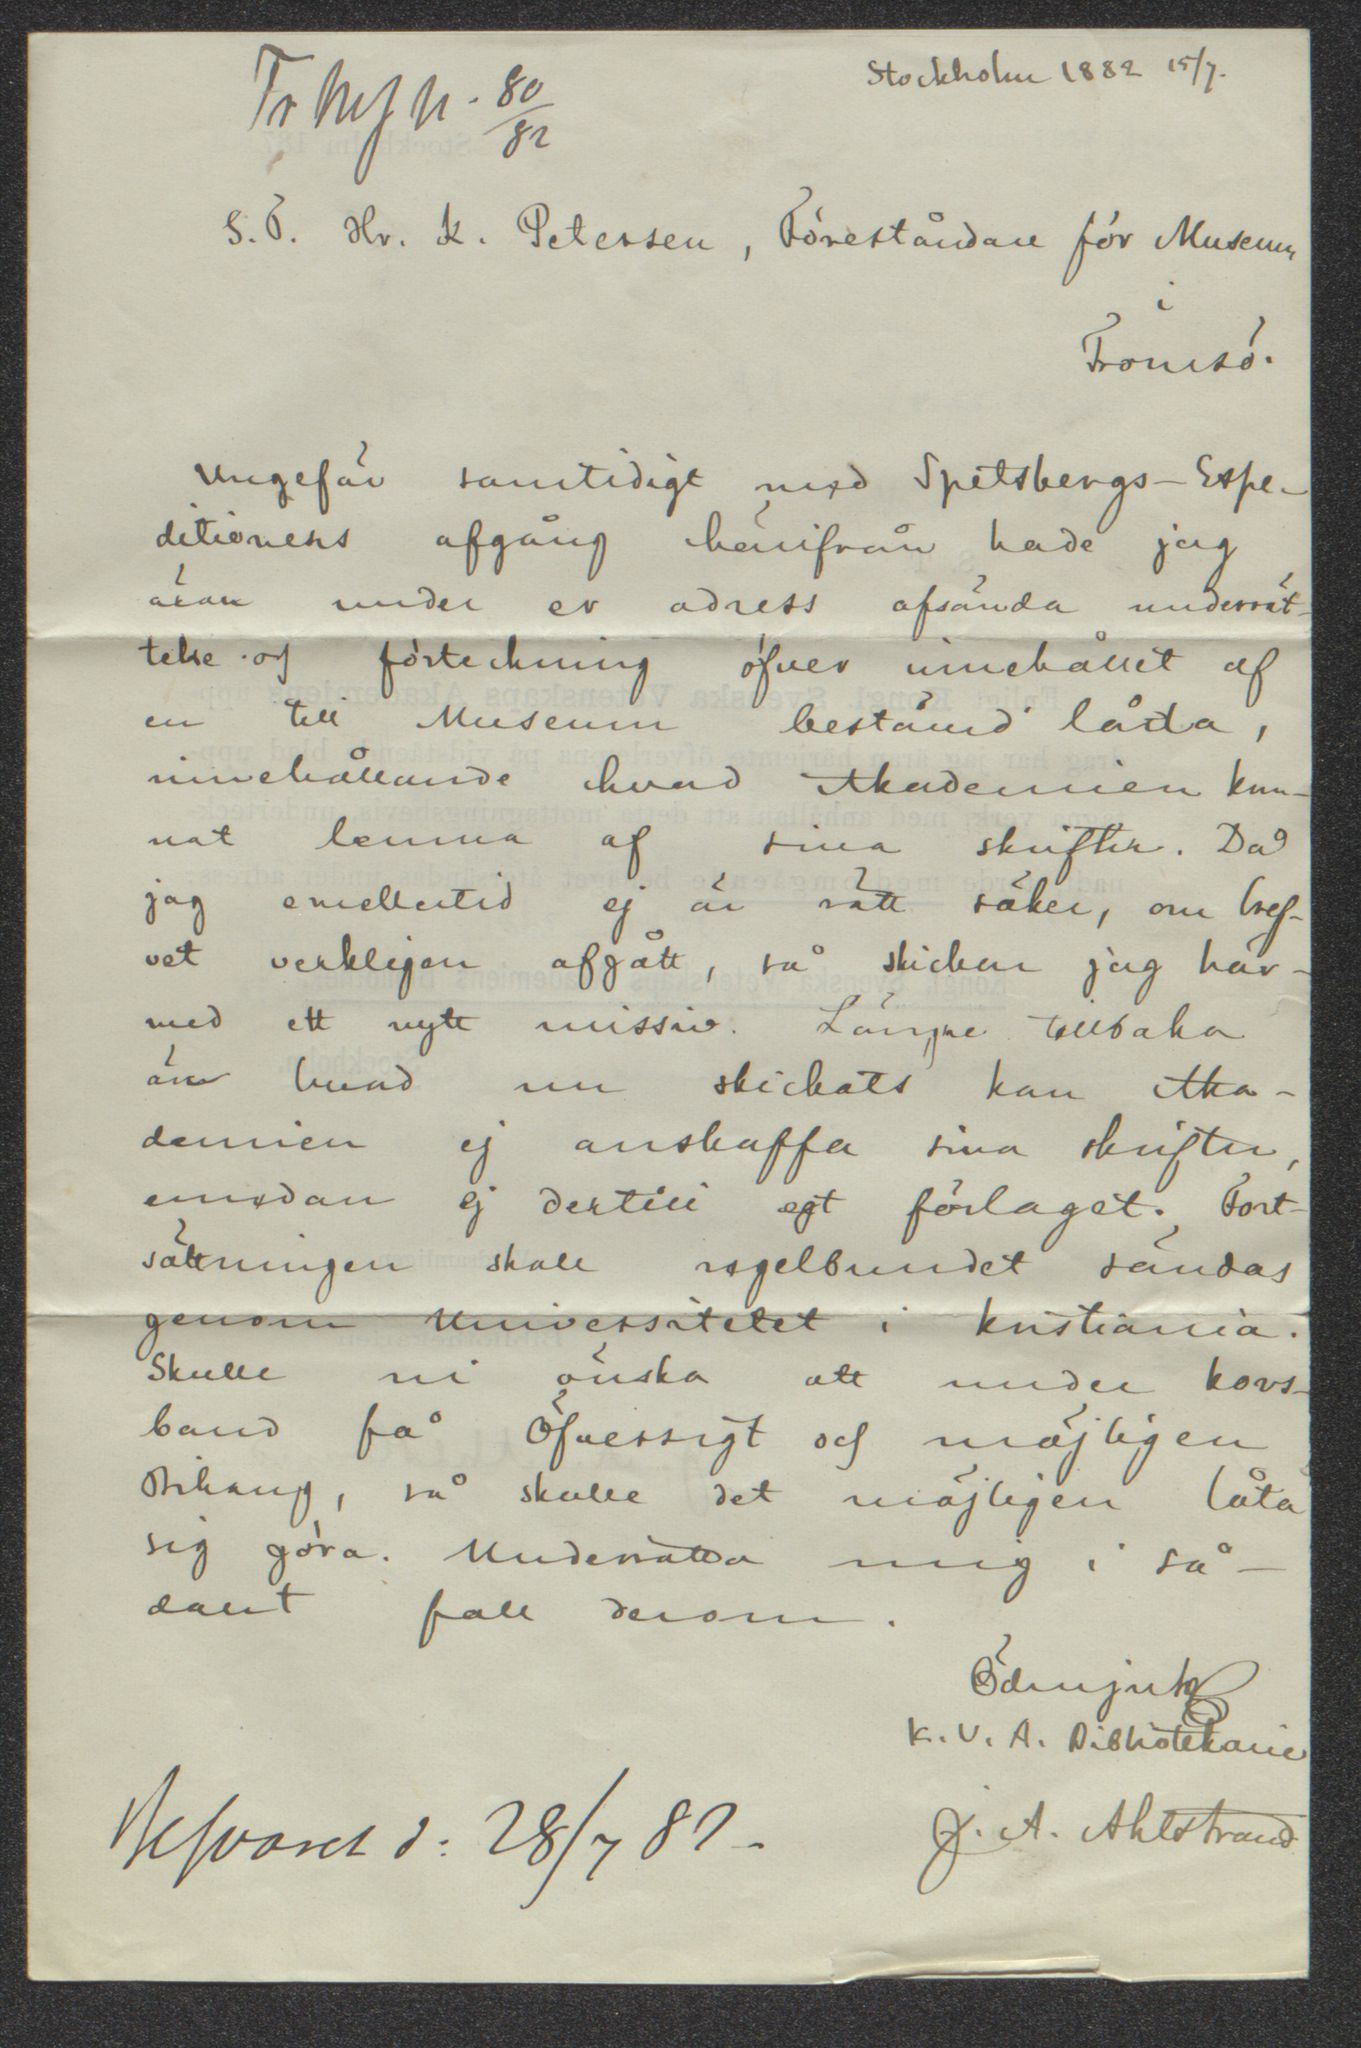 Stockholm 1882 15/7.
80
82
S. T. Hr. K. Petersen, Föreståndare för Museum
i
Tromsö.
Ungefär samtidigt med Spetsbergs-Expe-
ditionens afgång härifrån hade jag
äran under er adress afsända underrät-
telse och förteckning öfver innehållet af
en till Museum bestämd låda,
innehållande hvad Akademien kun-
nat lemna af sina skrifter. Då
jag emellertid ej är rätt säker, om bref-
vet verkligen afgått, så skickar jag här-
med ett nytt missiv. Längre tillbaka
än hvad nu skickats kan Aka-
demien ej anskaffa sina skrifter,
emedan ej dertill egt förlaget. Fort-
sättningen skall regelbundet sändas
genom Universitetet i Kristiania.
Skulle ni önska att under kors-
band få Öfversigt och möjligen
Bihang, så skulle det möjligen låta
sig göra. Underrätta mig i så-
dant fall derom.
Ödmjukt
K. V. A. Bibliotekarie
J. A. Ahlstrand
Besvaret d: 28/7 82.